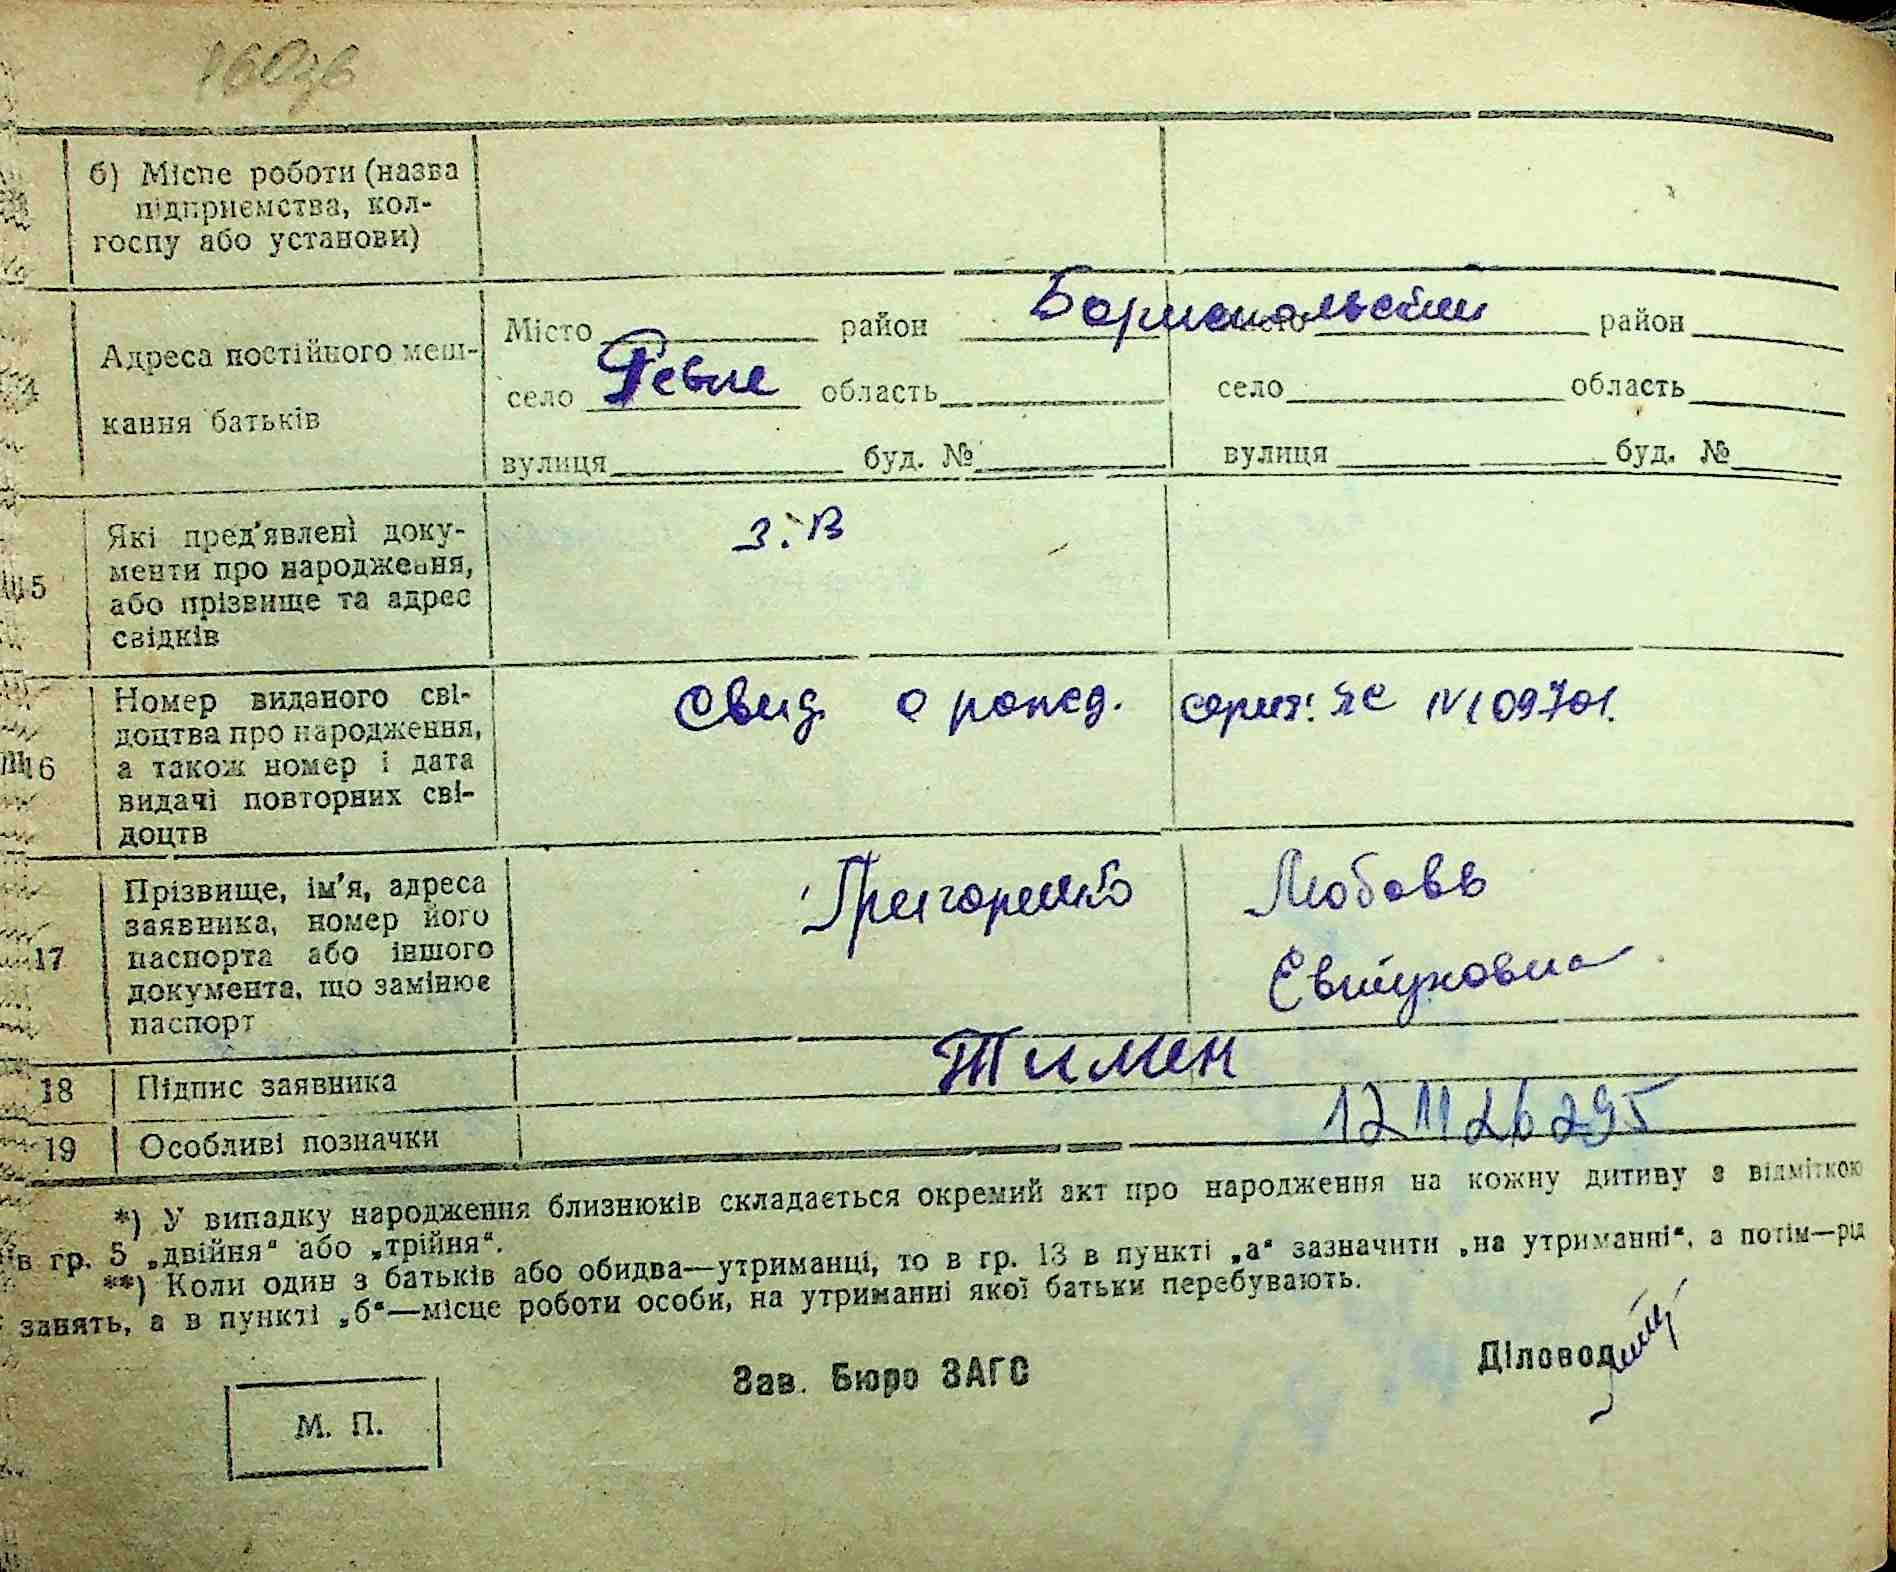 160зв
б) Місце роботи (назва
підприємства, кол-
госпу або установи)
Адреса постійного меш-
кання батьків
Місто район Бориспольский район
село Ревне область село область
вулиця буд. № вулиця буд. №
15
Які пред'явлені доку-
менти про народження,
або прізвище та адрес
свідків
З.В
16
Номер виданого сві-
доцтва про народження,
а також номер і дата
видачі повторних сві-
доцтв
Свид. о рожд. серия: ЯС № 109701.
17
Прізвище, ім'я, адреса
заявника, номер його
паспорта або іншого
документа, що замінює
паспорт
Григоренко Любовь
Евтуховна
18 Підпис заявника
19 Особливі позначки
*) У випадку народження близнюків складається окремий акт про народження на кожну дитину з відміткою
в гр. 5 „двійня“ або „трійня“.
**) Коли один з батьків або обидва—утриманці, то в гр. 13 в пункті „а“ зазначити „на утриманні“, а потім—рід
занять, а в пункті „б“—місце роботи особи, на утриманні якої батьки перебувають.
М. П.
Зав. Бюро ЗАГС
Діловод